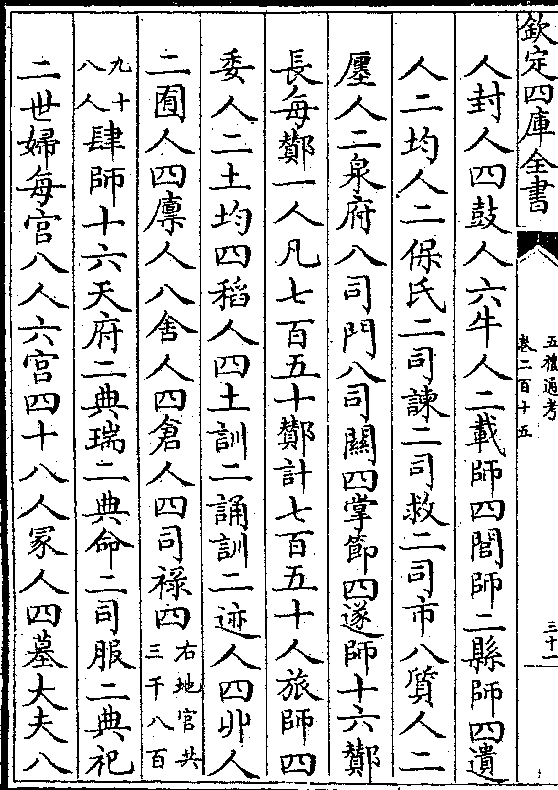 欽定四庫全書
五禮通考
卷二百十五
三十一
人封人四鼓人六牛人二載師四閭師二縣師四遺
人二均人二保氏二司諫二司救二司市八質人二
廛人二泉府八司門八司關四掌節四遂師十六酇
長每酇一人凡七百五十酇計七百五十人旅師四
委人二土均四稻人四土訓二誦訓二迹人四丱人
二囿人四廪人八舍人四倉人四司祿四右地官共三千八百
九十八人肆師十六天府二典瑞二典命二司服二典祀
二世婦每宫八人六宫四十八人冡人四墓大夫八